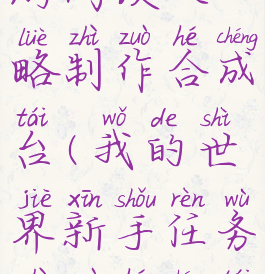 lüè zhì zuò hé chéng
略制作合成
tái wǒ de shì
台(我的世
jiè xīn shǒu rèn wù
界新手任务